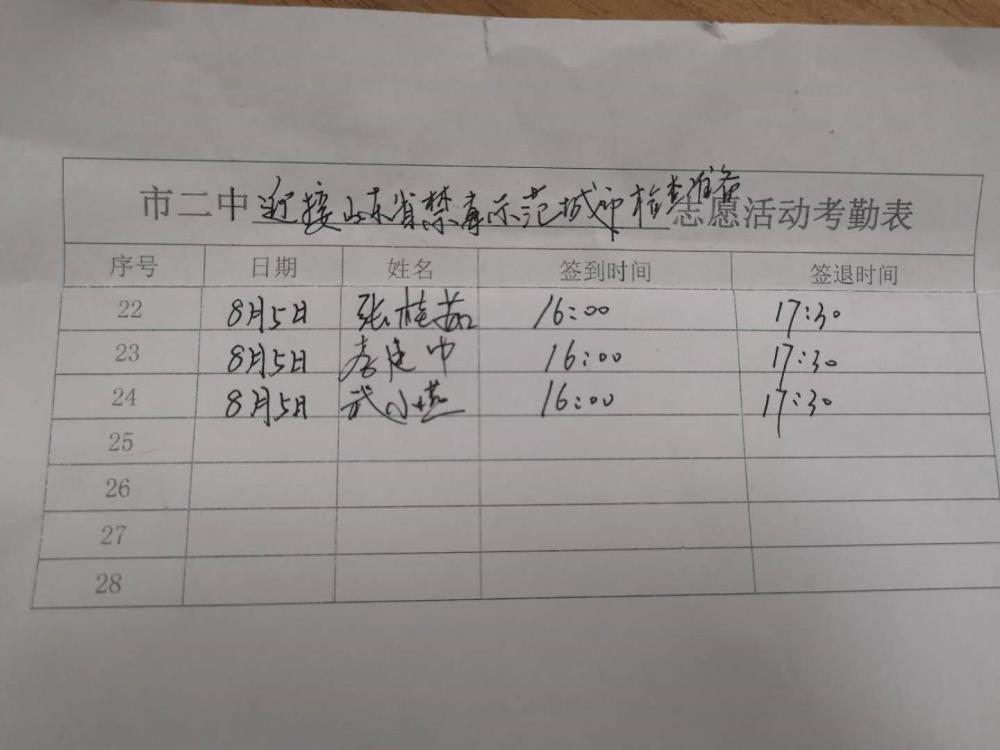 市二中迎接山东省禁毒示范城市检查准备志愿活动考勤表
序号 日期 姓名 签到时间 签退时间
22 8月5日 张桂茹 16:00 17:30
23 8月5日 李建中 16:00 17:30
24 8月5日 武小燕 16:00 17:30
25
26
27
28